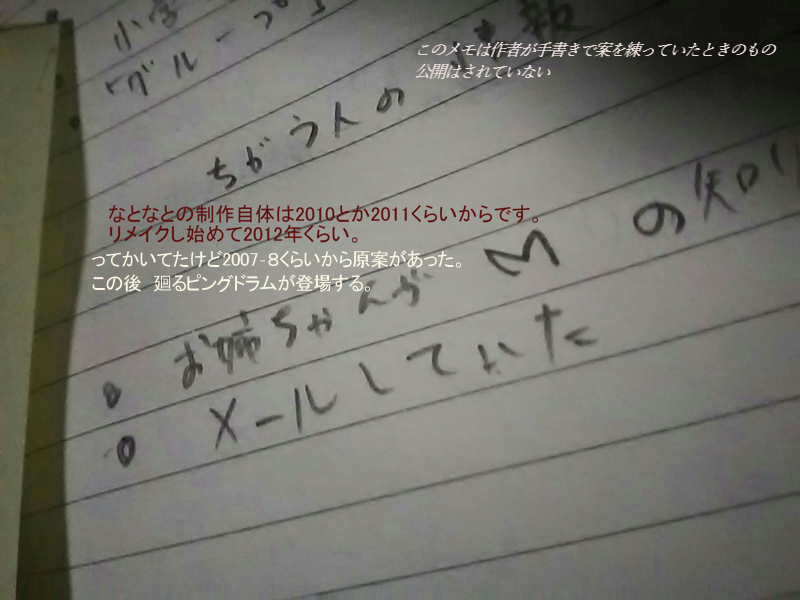 小学
「グループ
このメモは作者が手書きで案を練っていたときのもの
公開はされていない
ちがう人の 情報
なとなとの制作自体は2010とか2011くらいからです。
リメイクし始めて2012年くらい。
ってかいてたけど2007-８くらいから原案があった。
この後　廻るピングドラムが登場する。
お姉ちゃんが M の知り
メールしていた